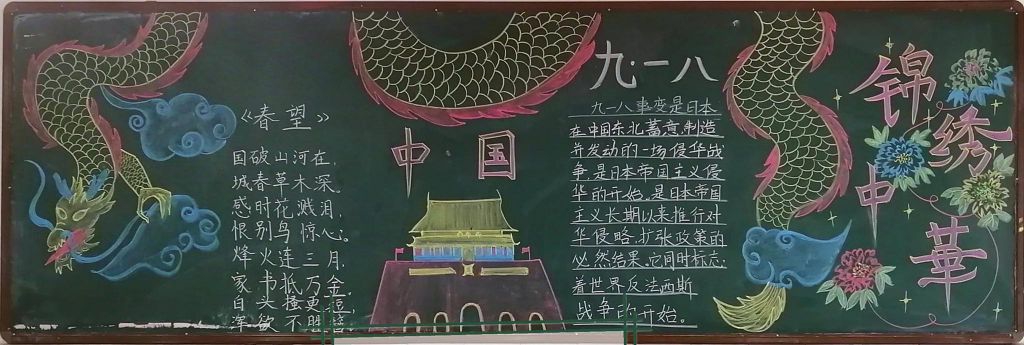 《春望》
国破山河在,
城春草木深
感时花溅泪,
恨别鸟惊心。
烽火连三月,
家书抵万金。
白头搔更短,
浑欲不胜簪。
中·国
九·一八
九一八事变是日本
在中国东北蓄意制造
并发动的一场侵华战
争,是日本帝国主义侵
华的开始,是日本帝国
主义长期以来推行对
华侵略、扩张政策的
必然结果,它同时标志
着世界反法西斯
战争的开始。
锦绣中華